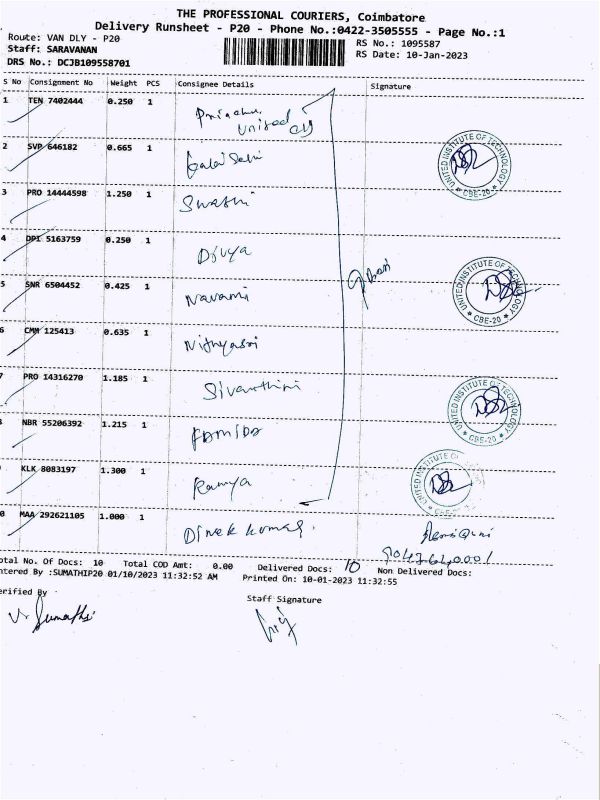 THE PROFESSIONAL COURIERS, Coimbatore
Delivery Runsheet - P20 - Phone No.:0422-3505555 - Page No.:1
Route: VAN DLY - P20
RS No.: 1095587
Staff: SARAVANAN
RS Date: 10-Jan-2023
DRS No.: DCJB109558701
S No Consignment No Weight PCS Consignee Details Signature
1 TEN 7402444 0.250 1
United
2 SVP 646182 0.665 1
3 PRO 14444598 1.250 1 Swathi
4 DPI 5163759 0.250 1 Divya
5 SNR 6504452 0.425 1 Navami
6 CMM 125413 0.635 1 Nithyasri
7 PRO 14316270 1.185 1
8 NBR 55206392 1.215 1
KLK 8083197 1.300 1 Ramya
0 MAA 292621105 1.000 1 Dinek kumar.
UNITED INSTITUTE OF TECHNOLOGY * CBE-20 *
UNITED INSTITUTE OF TECHNOLOGY * CBE-20 *
UNITED INSTITUTE OF TECHNOLOGY * CBE-20 *
UNITED INSTITUTE
otal No. Of Docs: 10 Total COD Amt: 0.00 Delivered Docs: 10 Non Delivered Docs:
ntered By :SUMATHIP20 01/10/2023 11:32:52 AM Printed On: 10-01-2023 11:32:55
erified By Staff Signature
V. Sumathi